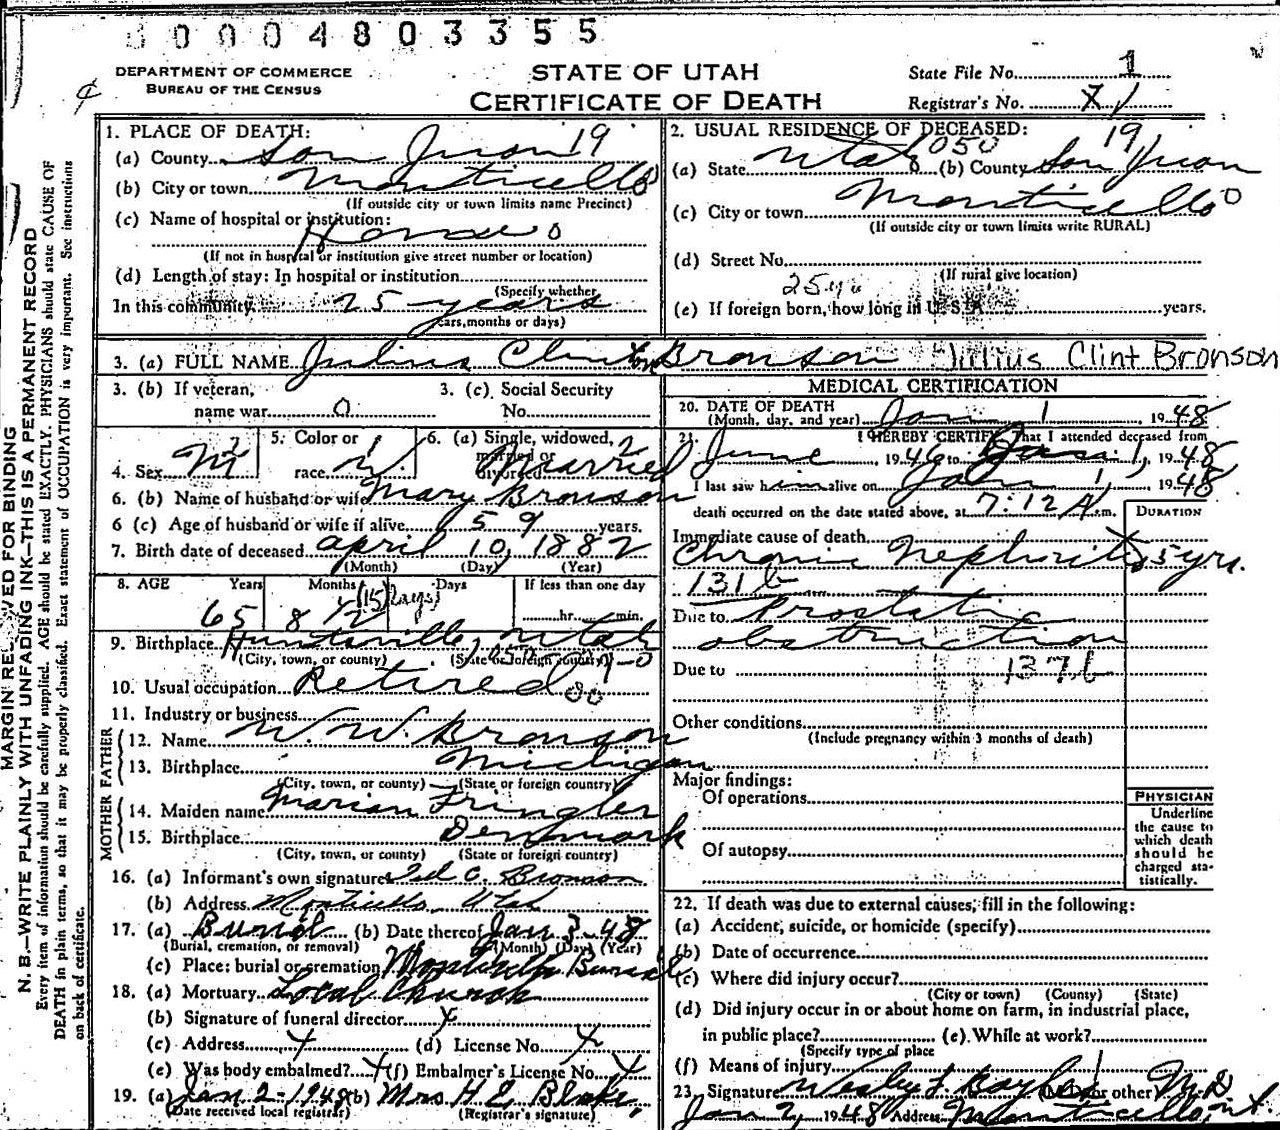 00004803355
DEPARTMENT OF COMMERCE
BUREAU OF THE CENSUS
STATE OF UTAH
CERTIFICATE OF DEATH
State File No. 1
Registrar's No. 1
MARGIN RESERVED FOR BINDING
N. B.—WRITE PLAINLY WITH UNFADING INK—THIS IS A PERMANENT RECORD
Every item of information should be carefully supplied. AGE should be stated EXACTLY. PHYSICIANS should state CAUSE OF
DEATH in plain terms, so that it may be properly classified. Exact statement of OCCUPATION is very important. See instructions
on back of certificate.
1. PLACE OF DEATH: 19
(a) County San Juan
(b) City or town Monticello
(If outside city or town limits name Precinct)
(c) Name of hospital or institution:
Home 0
(If not in hospital or institution give street number or location)
(d) Length of stay: In hospital or institution
(Specify whether
In this community 25 years
years, months or days)
2. USUAL RESIDENCE OF DECEASED: 19
(a) State Utah 050 (b) County San Juan
(c) City or town Monticello 0
(If outside city or town limits write RURAL)
(d) Street No.
(If rural give location)
25 yr
(e) If foreign born, how long in U. S. A. years.
3. (a) FULL NAME Julius Clinton Bronson Julius Clint Bronson
3. (b) If veteran,
name war 0
3. (c) Social Security
No.
4. Sex M 2
5. Color or
race W. 1
6. (a) Single, widowed, 2
married or
divorced Married
6. (b) Name of husband or wife Mary Bronson
6 (c) Age of husband or wife if alive 59 years.
7. Birth date of deceased April 10, 1882
(Month) (Day) (Year)
8. AGE Years Months Days If less than one day
65 8 (15 Days) hr. min.
9. Birthplace Huntsville, Utah
(City, town, or county) (State or foreign country)
10. Usual occupation Retired
11. Industry or business
FATHER
12. Name W. W. Bronson
13. Birthplace Michigan
(City, town, or county) (State or foreign country)
MOTHER
14. Maiden name Marian Fringler
15. Birthplace Denmark
(City, town, or county) (State or foreign country)
16. (a) Informant's own signature Ted C. Bronson
(b) Address Monticello, Utah
17. (a) Burial (b) Date thereof Jan 3 48
(Burial, cremation, or removal) (Month) (Day) (Year)
(c) Place: burial or cremation Monticello
18. (a) Mortuary Local Church
(b) Signature of funeral director x
(c) Address x (d) License No. x
(e) Was body embalmed? x (f) Embalmer's License No. x
19. (a) Jan 2 - 1948 (b) Mrs H E Blake,
(Date received local registrar) (Registrar's signature)
MEDICAL CERTIFICATION
20. DATE OF DEATH
(Month, day, and year) Jan 1, 1948
21. I HEREBY CERTIFY, That I attended deceased from
June 1946 to Jan. 1, 1948
I last saw him alive on Jan 1, 1948
death occurred on the date stated above, at 7:12 A.m.
DURATION
Immediate cause of death
Chronic Nephritis 5 yrs.
131 b
Due to Prostatic
obstruction
Due to 137b
Other conditions
(Include pregnancy within 3 months of death)
Major findings:
Of operations
Of autopsy
PHYSICIAN
Underline
the cause to
which death
should be
charged sta-
tistically.
22. If death was due to external causes, fill in the following:
(a) Accident, suicide, or homicide (specify)
(b) Date of occurrence
(c) Where did injury occur?
(City or town) (County) (State)
(d) Did injury occur in or about home on farm, in industrial place,
in public place? (e) While at work?
(Specify type of place
(f) Means of injury
23. Signature Wesley J. or other M.D
Jan 2, 1948 Address Monticello, Ut.